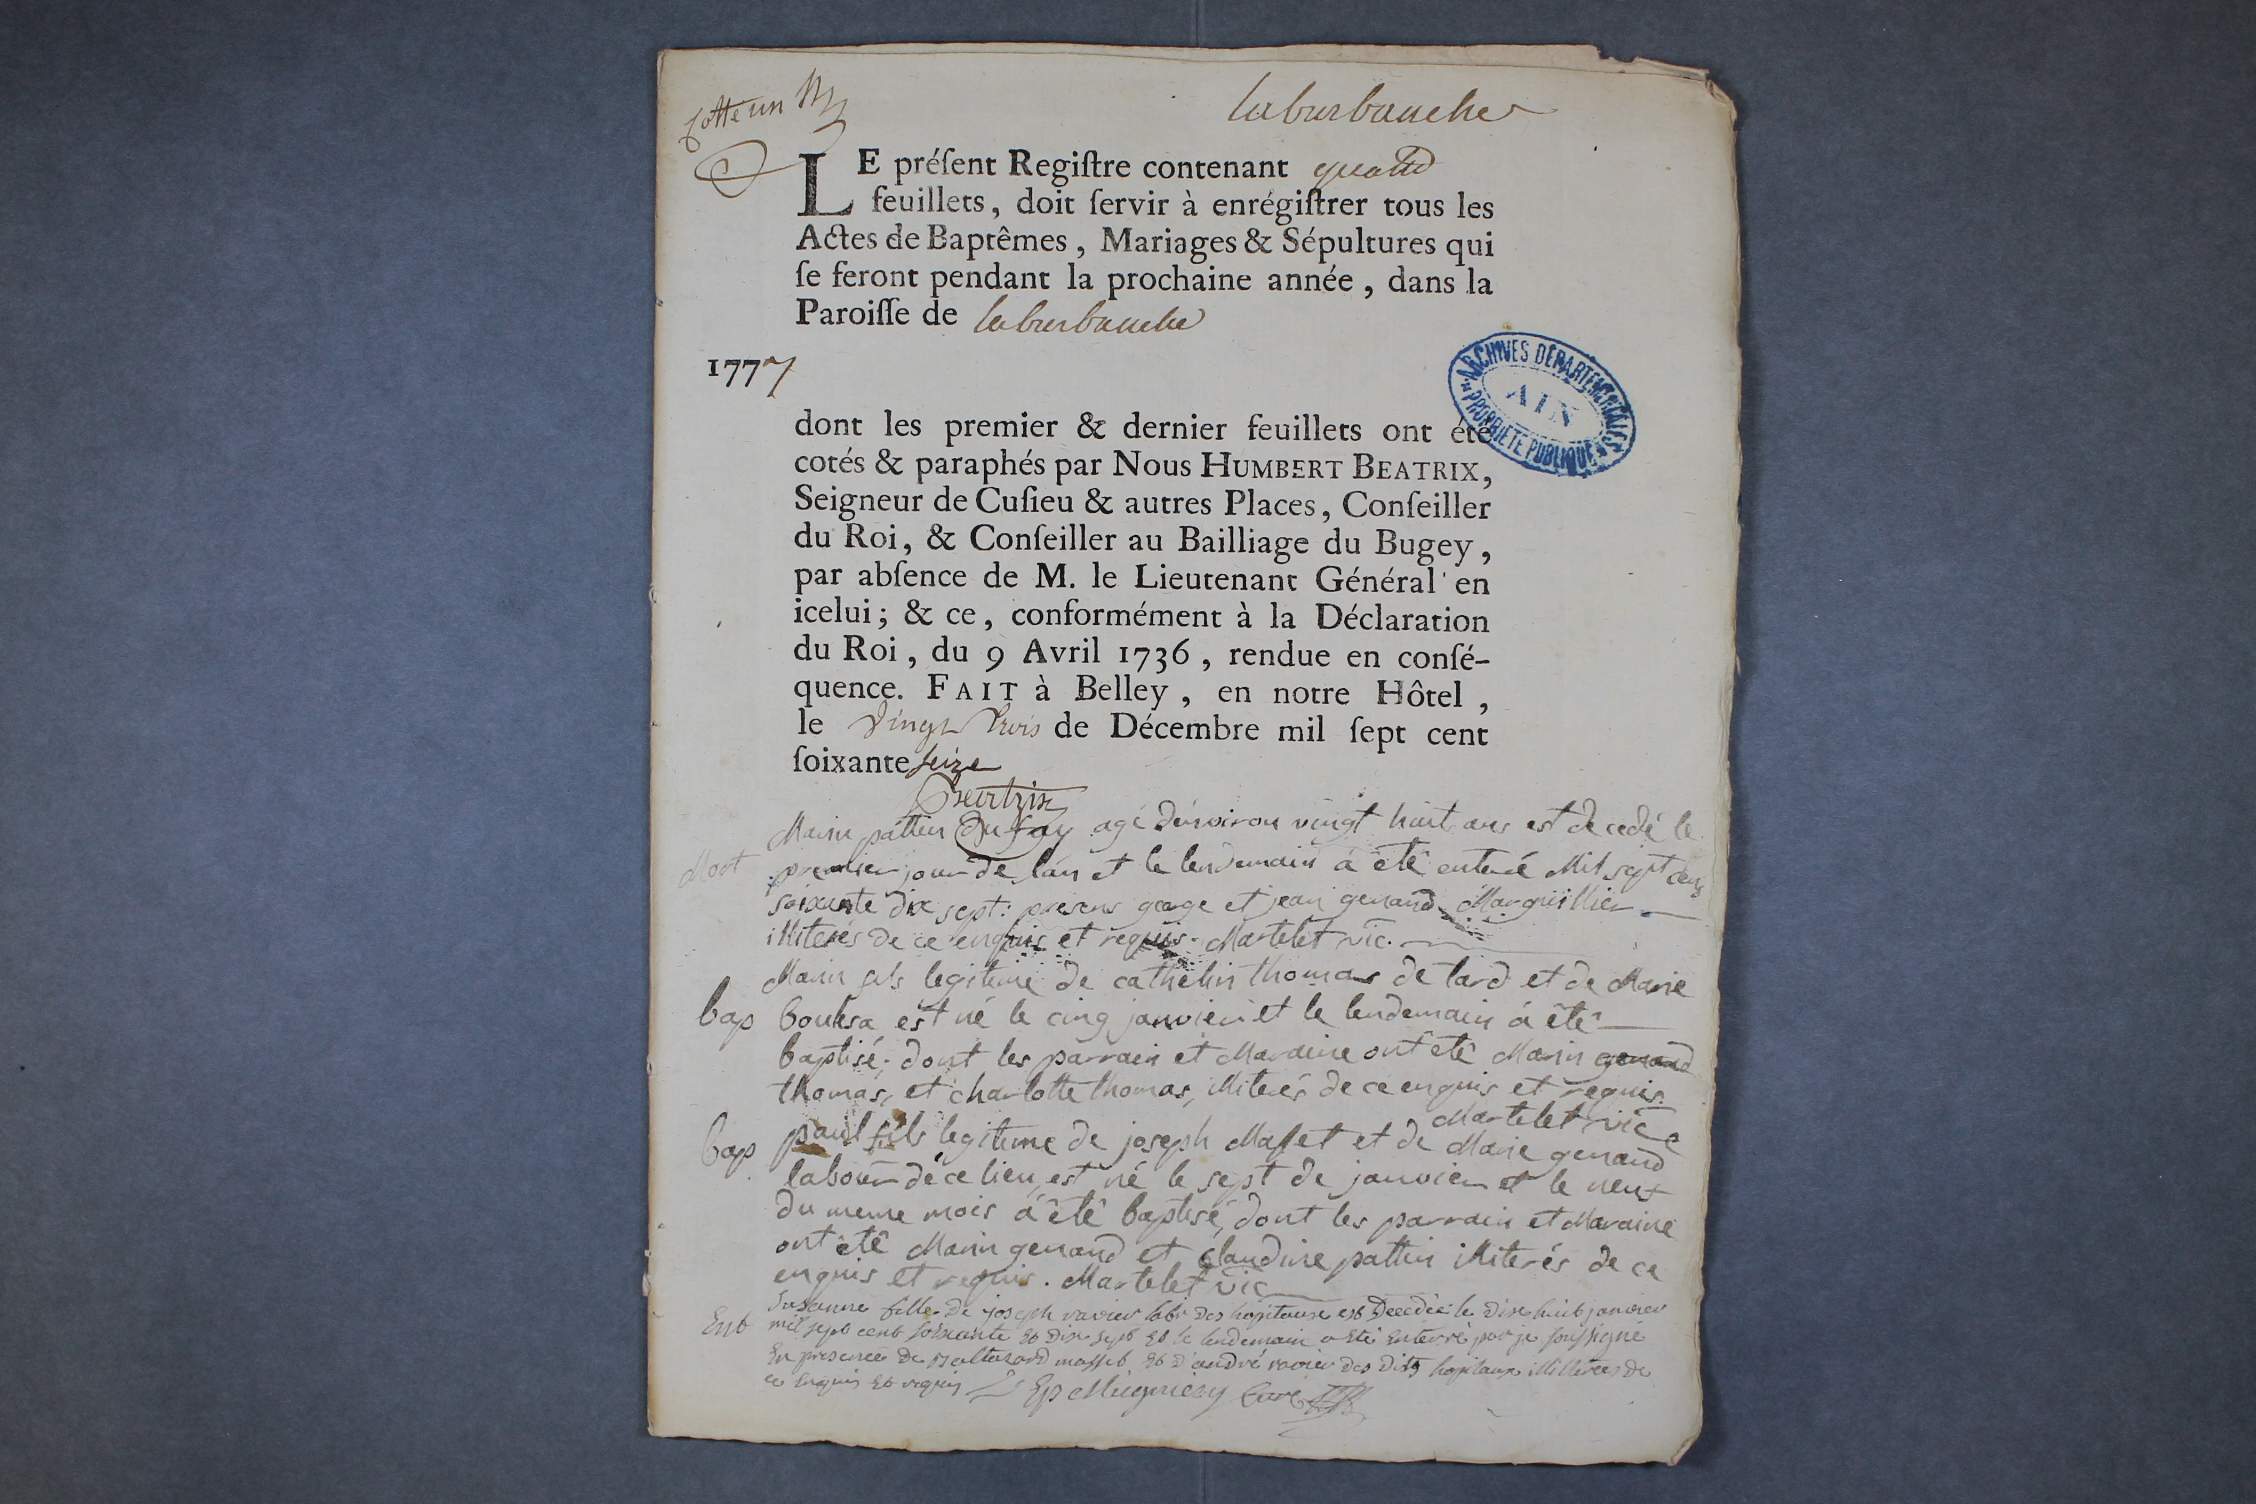 Cotte un
laburbanche
LE préſent Regiſtre contenant quatre
feuillets, doit ſervir à enrégiſtrer tous les
Actes de Baptêmes, Mariages & Sépultures qui
ſe feront pendant la prochaine année, dans la
Paroiſſe de laburbanche
1777
ARCHIVES DÉPARTEMENTALES
AIN
PROPRIÉTÉ PUBLIQUE
dont les premier & dernier feuillets ont été
cotés & paraphés par Nous HUMBERT BEATRIX,
Seigneur de Cuſieu & autres Places, Conſeiller
du Roi, & Conſeiller au Bailliage du Bugey,
par abſence de M. le Lieutenant Général en
icelui; & ce, conformément à la Déclaration
du Roi, du 9 Avril 1736, rendue en conſé-
quence. FAIT à Belley, en notre Hôtel,
le vingt trois de Décembre mil ſept cent
ſoixante seize
Beatrix
Marin pattin du fay agé d'environ vingt huit ans est decedé le
Mort premier jour de l'an et le lendemain á été enterré Mil sept cens
soixante dix sept: presens george et jean genand Marguillier
illiterés de ce enquis et requis. Martelet vic.
Marin fils legitime de cathelin thomas de lard et de Marie
bap est né le cinq janvier et le lendemain á été
baptisé; dont les parrain et Maraine ont été Marin genand
thomas, et charlotte thomas, illiterés de ce enquis et requis.
Martelet vic
bap paul fils legitime de joseph Maset et de Marie genand
labour de ce lieu, est né le sept de janvier et le neuf
du meme mois á été baptisé, dont les parrain et Maraine
ont été Marin genand et claudine pattin illiterés de ce
enquis et requis. Martelet vic
Susanne fille de joseph ravier labr des hopitaux est Decedée le Dix huit janvier
Ent mil sept cent soixante et Dix sept et le lendemain a eté Enterré par je soussigné
En presence De Baltazard masset et D'andré ravier des Dits hopitaux illiterés De
ce Enquis et requis Curé